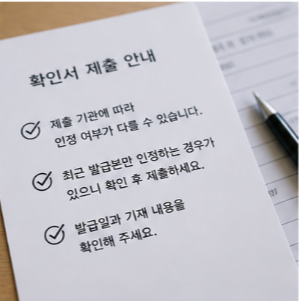 확인서 제출 안내
제출 기관에 따라
인정 여부가 다를 수 있습니다.
최근 발급본만 인정하는 경우가
있으니 확인 후 제출하세요.
발급일과 기재 내용을
확인해 주세요.